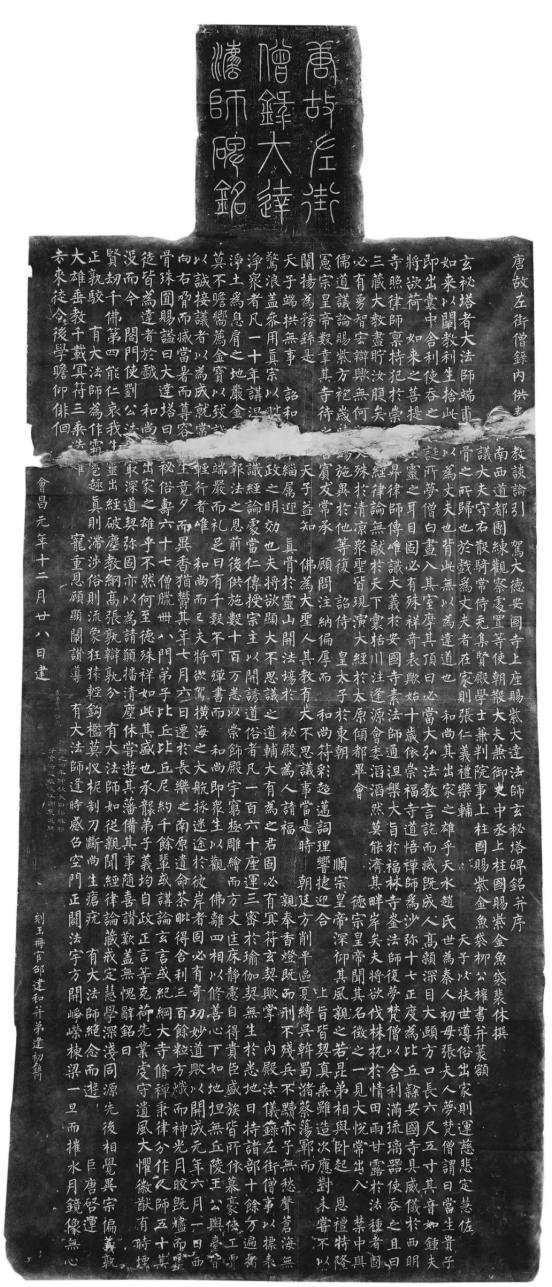 唐故左街
僧錄大達
法師碑銘
唐故左街僧錄內供奉 教談論引 駕大德安國寺上座賜紫大達法師玄秘塔碑銘并序
南西道都團練觀察處置等使朝散大夫兼御史中丞上柱國賜紫金魚袋裴休撰
議大夫守右散騎常侍充集賢殿學士兼判院事上柱國賜紫金魚袋柳公權書并篆額
玄秘塔者大法師端甫 骨之所歸也於戲為丈夫者在家則張仁義禮樂輔 天子以扶世導俗出家則運慈悲定慧佐
如來以闡教利生捨此 以為丈夫也背此無以為達道也 和尚其出家之雄乎天水趙氏世為秦人初母張夫人夢梵僧謂曰當生貴子
即出囊中舍利使吞之 誕所夢僧白晝入其室摩其頂曰必當大弘法教言訖而滅既成人高顙深目大頤方口長六尺五寸其音如鍾夫
將欲荷 如來之菩提 靈之耳目固必有殊祥奇表歟始十歲依崇福寺道悟禪師為沙彌十七正度為比丘隸安國寺具威儀於西明
寺照律師稟持犯於崇 昇律師傳唯識大義於安國寺素法師通涅槃大旨於福林寺崟法師復夢梵僧以舍利滿琉璃器使吞之且曰
三藏大教盡貯汝腹矣 經律論無敵於天下囊括川注逢源會委滔滔然莫能濟其畔岸矣夫將欲伐株杌於情田雨甘露於法種者固
必有勇智宏辯歟無何 殊於清涼眾聖皆現演大經於太原傾都畢會 德宗皇帝聞其名徵之一見大悅常出入 禁中與
儒道議論賜紫方袍歲 錫施異於他等復 詔侍 皇太子於東朝 順宗皇帝深仰其風親之若昆弟相與臥起 恩禮特隆
憲宗皇帝數幸其寺待 若賓友常承 顧問注納偏厚而 和尚符彩超邁詞理響捷迎合 上旨皆契真乘雖造次應對未嘗不以
闡揚為務繇是 天子益知 佛為大聖人其教有大不思議事當是時 朝廷方削平區夏縛吳斡蜀瀦蔡蕩鄆而
天子端拱無事 詔和 緇屬迎 真骨於靈山開法場於 秘殿為人請福 親奉香燈既而刑不殘兵不黷赤子無愁聲蒼海無
驚浪蓋參用真宗以毗 政之明效也夫將欲顯大不思議之道輔大有為之君固必有冥符玄契歟掌 內殿法儀錄左街僧事以摽表
淨眾者凡一十年講涅 識經論處當仁傳授宗主以開誘道俗者凡一百六十座運三密於瑜伽契無生於悉地日持諸部十餘萬遍指
淨土為息肩之地嚴金 報法之恩前後供施數十百萬悉以崇飾殿宇窮極雕繪而方丈匡床靜慮自得貴臣盛族皆所依慕豪俠工賈
莫不瞻嚮薦金寶以致誠 端嚴而禮足日有千數不可殫書而 和尚即眾生以觀 佛離四相以修善心下如地坦無丘陵王公輿臺皆
以誠接議者以為成就常 輕行者唯 和尚而已夫將欲駕橫海之大航拯迷途於彼岸者固必有奇功妙道歟以開成元年六月一日西
向右脅而滅當暑而尊容 生竟夕而異香猶鬱其年七月六日遷於長樂之南原遺命荼毗得舍利三百餘粒方熾而神光月皎既燼而靈
骨珠圓賜謚曰大達塔曰 秘俗壽六十七僧臘卌八門弟子比丘比丘尼約千餘輩或講論玄言或紀綱大寺修禪秉律分作人師五十其
徒皆為達者於戲 和尚 出家之雄乎不然何至德殊祥如此其盛也承襲弟子義均自政正言等克荷先業虔守遺風大懼徽猷有時堙
沒而今 閤門使劉公法 最深道契彌固亦以為請願播清塵休嘗遊其藩備其事隨喜讚歎蓋無愧辭銘曰
賢劫千佛第四能仁哀我生靈出經破塵教網高張孰辯孰分 有大法師如從親聞經律論藏戒定慧學深淺同源先後相覺異宗偏義孰
正孰駁 有大法師為作霜雹趣真則滯涉俗則流象狂猿輕鉤檻莫收柅制刀斷尚生瘡疣 有大法師絕念而遊 巨唐啟運
大雄垂教千載冥符三乘迭耀 寵重恩顧顯闡讚導 有大法師逢時感召空門正闢法宇方開崢嶸棟梁一旦而摧水月鏡像無心
去來徒令後學瞻仰徘徊
會昌元年十二月廿八日建
刻玉冊官邵建和并弟建初鐫